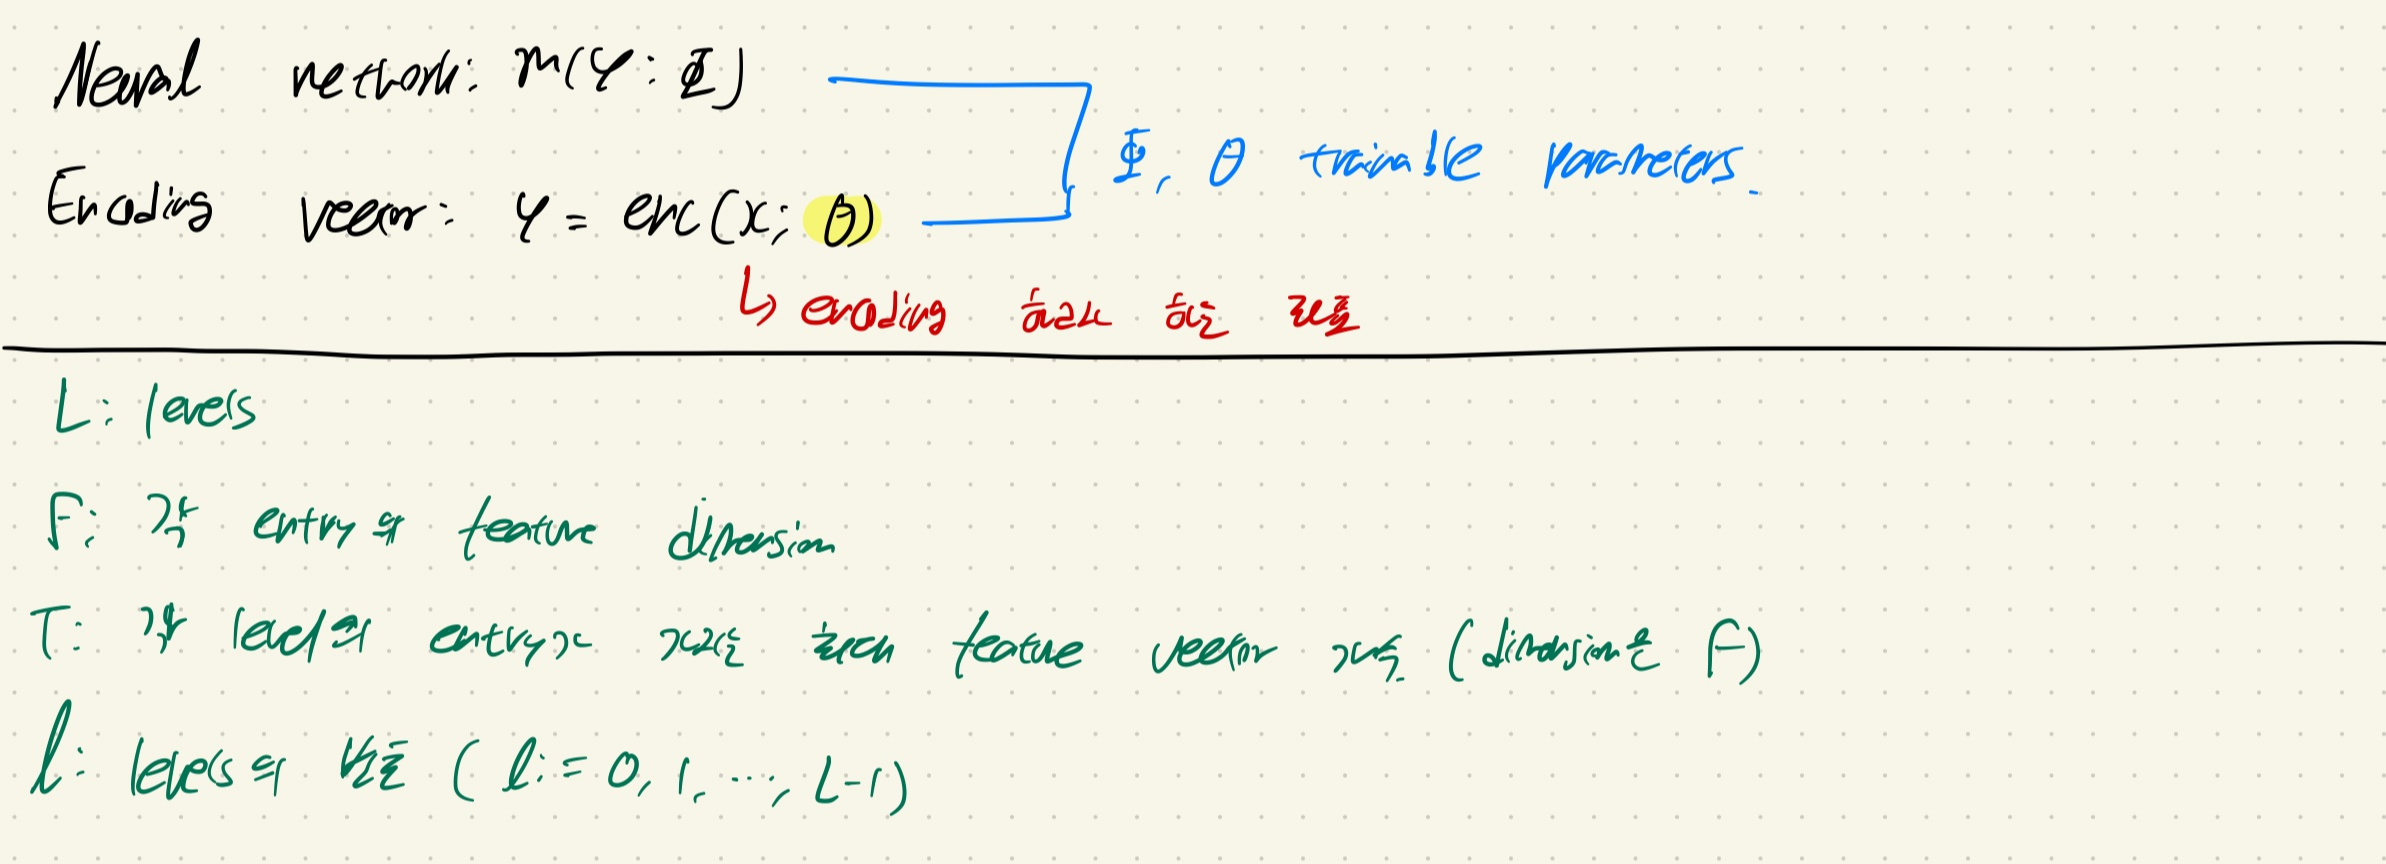 Neural network: m(y; Φ)
Φ, θ trainable parameters.
Encoding vector: y = enc(x; θ)
↳ encoding 하고자 하는 좌표
L: levels
F: 각 entry의 feature dimension
T: 각 level의 entry가 가지는 최대 feature vector 개수 (dimension은 F)
l: levels의 번호 (l := 0, 1, ..., L-1)